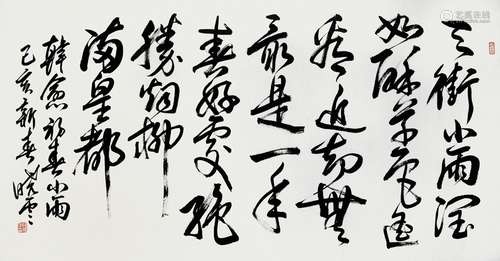 天街小雨润
如酥草色遥
看近却无
最是一年
春好处绝
胜烟柳
满皇都
韩愈初春小雨
己亥新春晓云